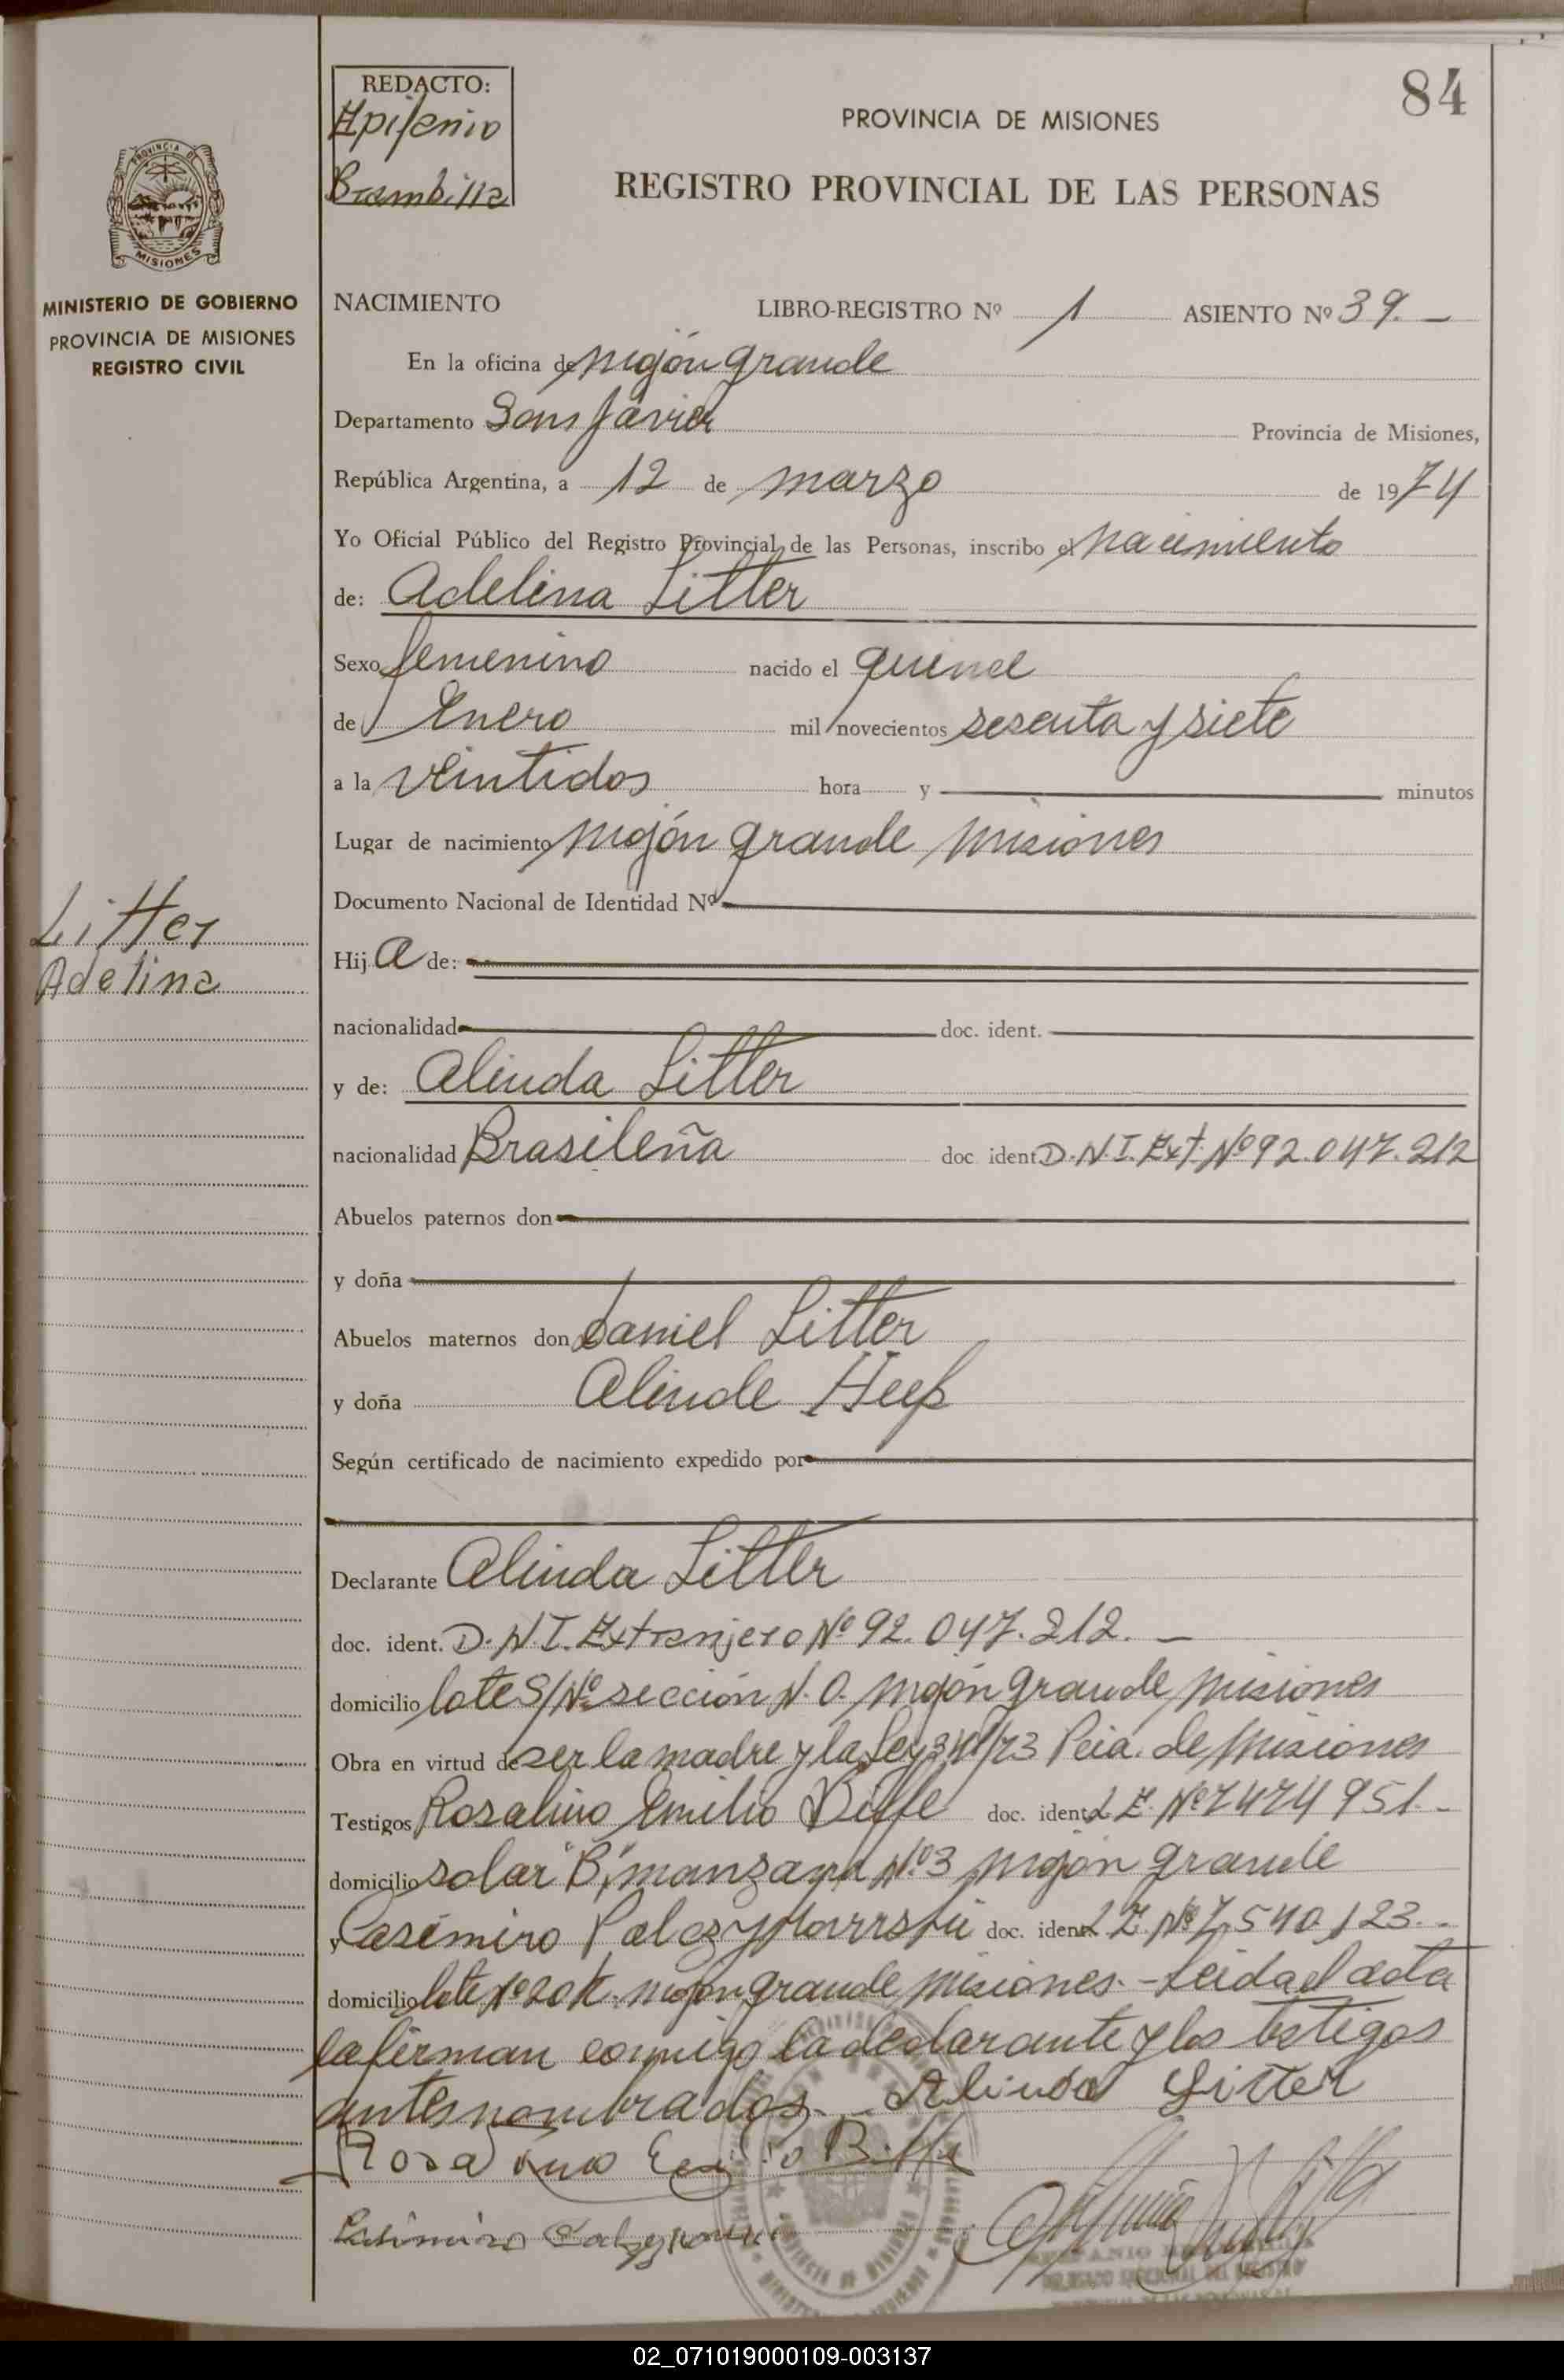 84
REDACTO:
Epifanio
Brambilla
PROVINCIA DE MISIONES
REGISTRO PROVINCIAL DE LAS PERSONAS
PROVINCIA DE
MISIONES
MINISTERIO DE GOBIERNO
PROVINCIA DE MISIONES
REGISTRO CIVIL
NACIMIENTO LIBRO-REGISTRO Nº 1 ASIENTO Nº 39.—
En la oficina de mojón grande
Departamento San Javier Provincia de Misiones,
República Argentina, a 12 de marzo de 1974
Yo Oficial Público del Registro Provincial de las Personas, inscribo el nacimiento
de: Adelina Litter
Sexo femenino nacido el quince
de Enero mil novecientos sesenta y siete
a la veintidos hora y minutos
Lugar de nacimiento mojón grande misiones
Documento Nacional de Identidad Nº
Litter
Adelina
Hij a de:
nacionalidad doc. ident.
y de: Alinda Litter
nacionalidad Brasileña doc ident D.N.I. Ext. Nº 92.047.212
Abuelos paternos don
y doña
Abuelos maternos don Daniel Litter
y doña Alinde
Según certificado de nacimiento expedido por
Declarante Alinda Litter
doc. ident. D.N.I. Extranjero Nº 92.047.212.—
domicilio lote S/Nº sección N.O. mojón grande misiones
Obra en virtud de ser la madre y la Ley /73 Pcia. de misiones
Testigos Rosalino Emilio doc. ident L E. Nº 7474951.-
domicilio solar "B", manzana Nº 3 mojón grande
y Casimiro doc. ident L E. Nº 7.540.123.-
domicilio lote Nº 20 mojón grande misiones.- Leida el acta
la firman conmigo la declarante y los testigos
antes nombrados.- Alinda Litter
02_071019000109-003137